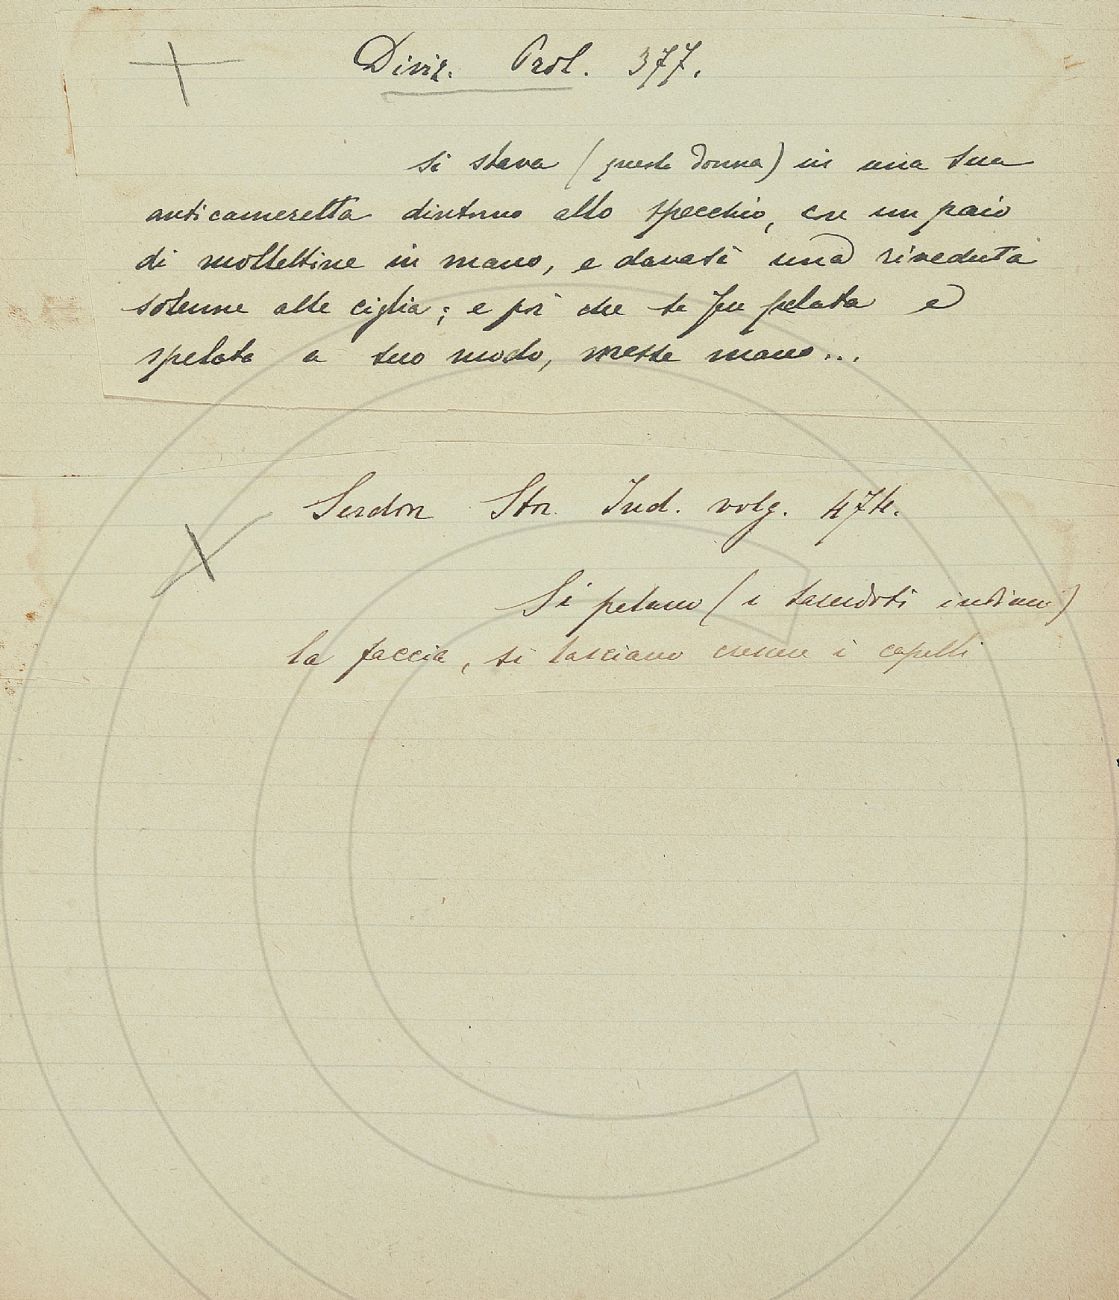 Diviz. Prol. 377.
si stava (questa donna) in una sua
anticameretta dintorno allo specchio, con un paio
di mollettine in mano, e davasi una riveduta
solenne alle ciglia; e poi che se fu pelata e
spelata a suo modo, messe mano...
Serdon Stor. Ind. volg. 474.
Si pelano (i sacerdoti indiani)
la faccia, si lasciano crescere i capelli